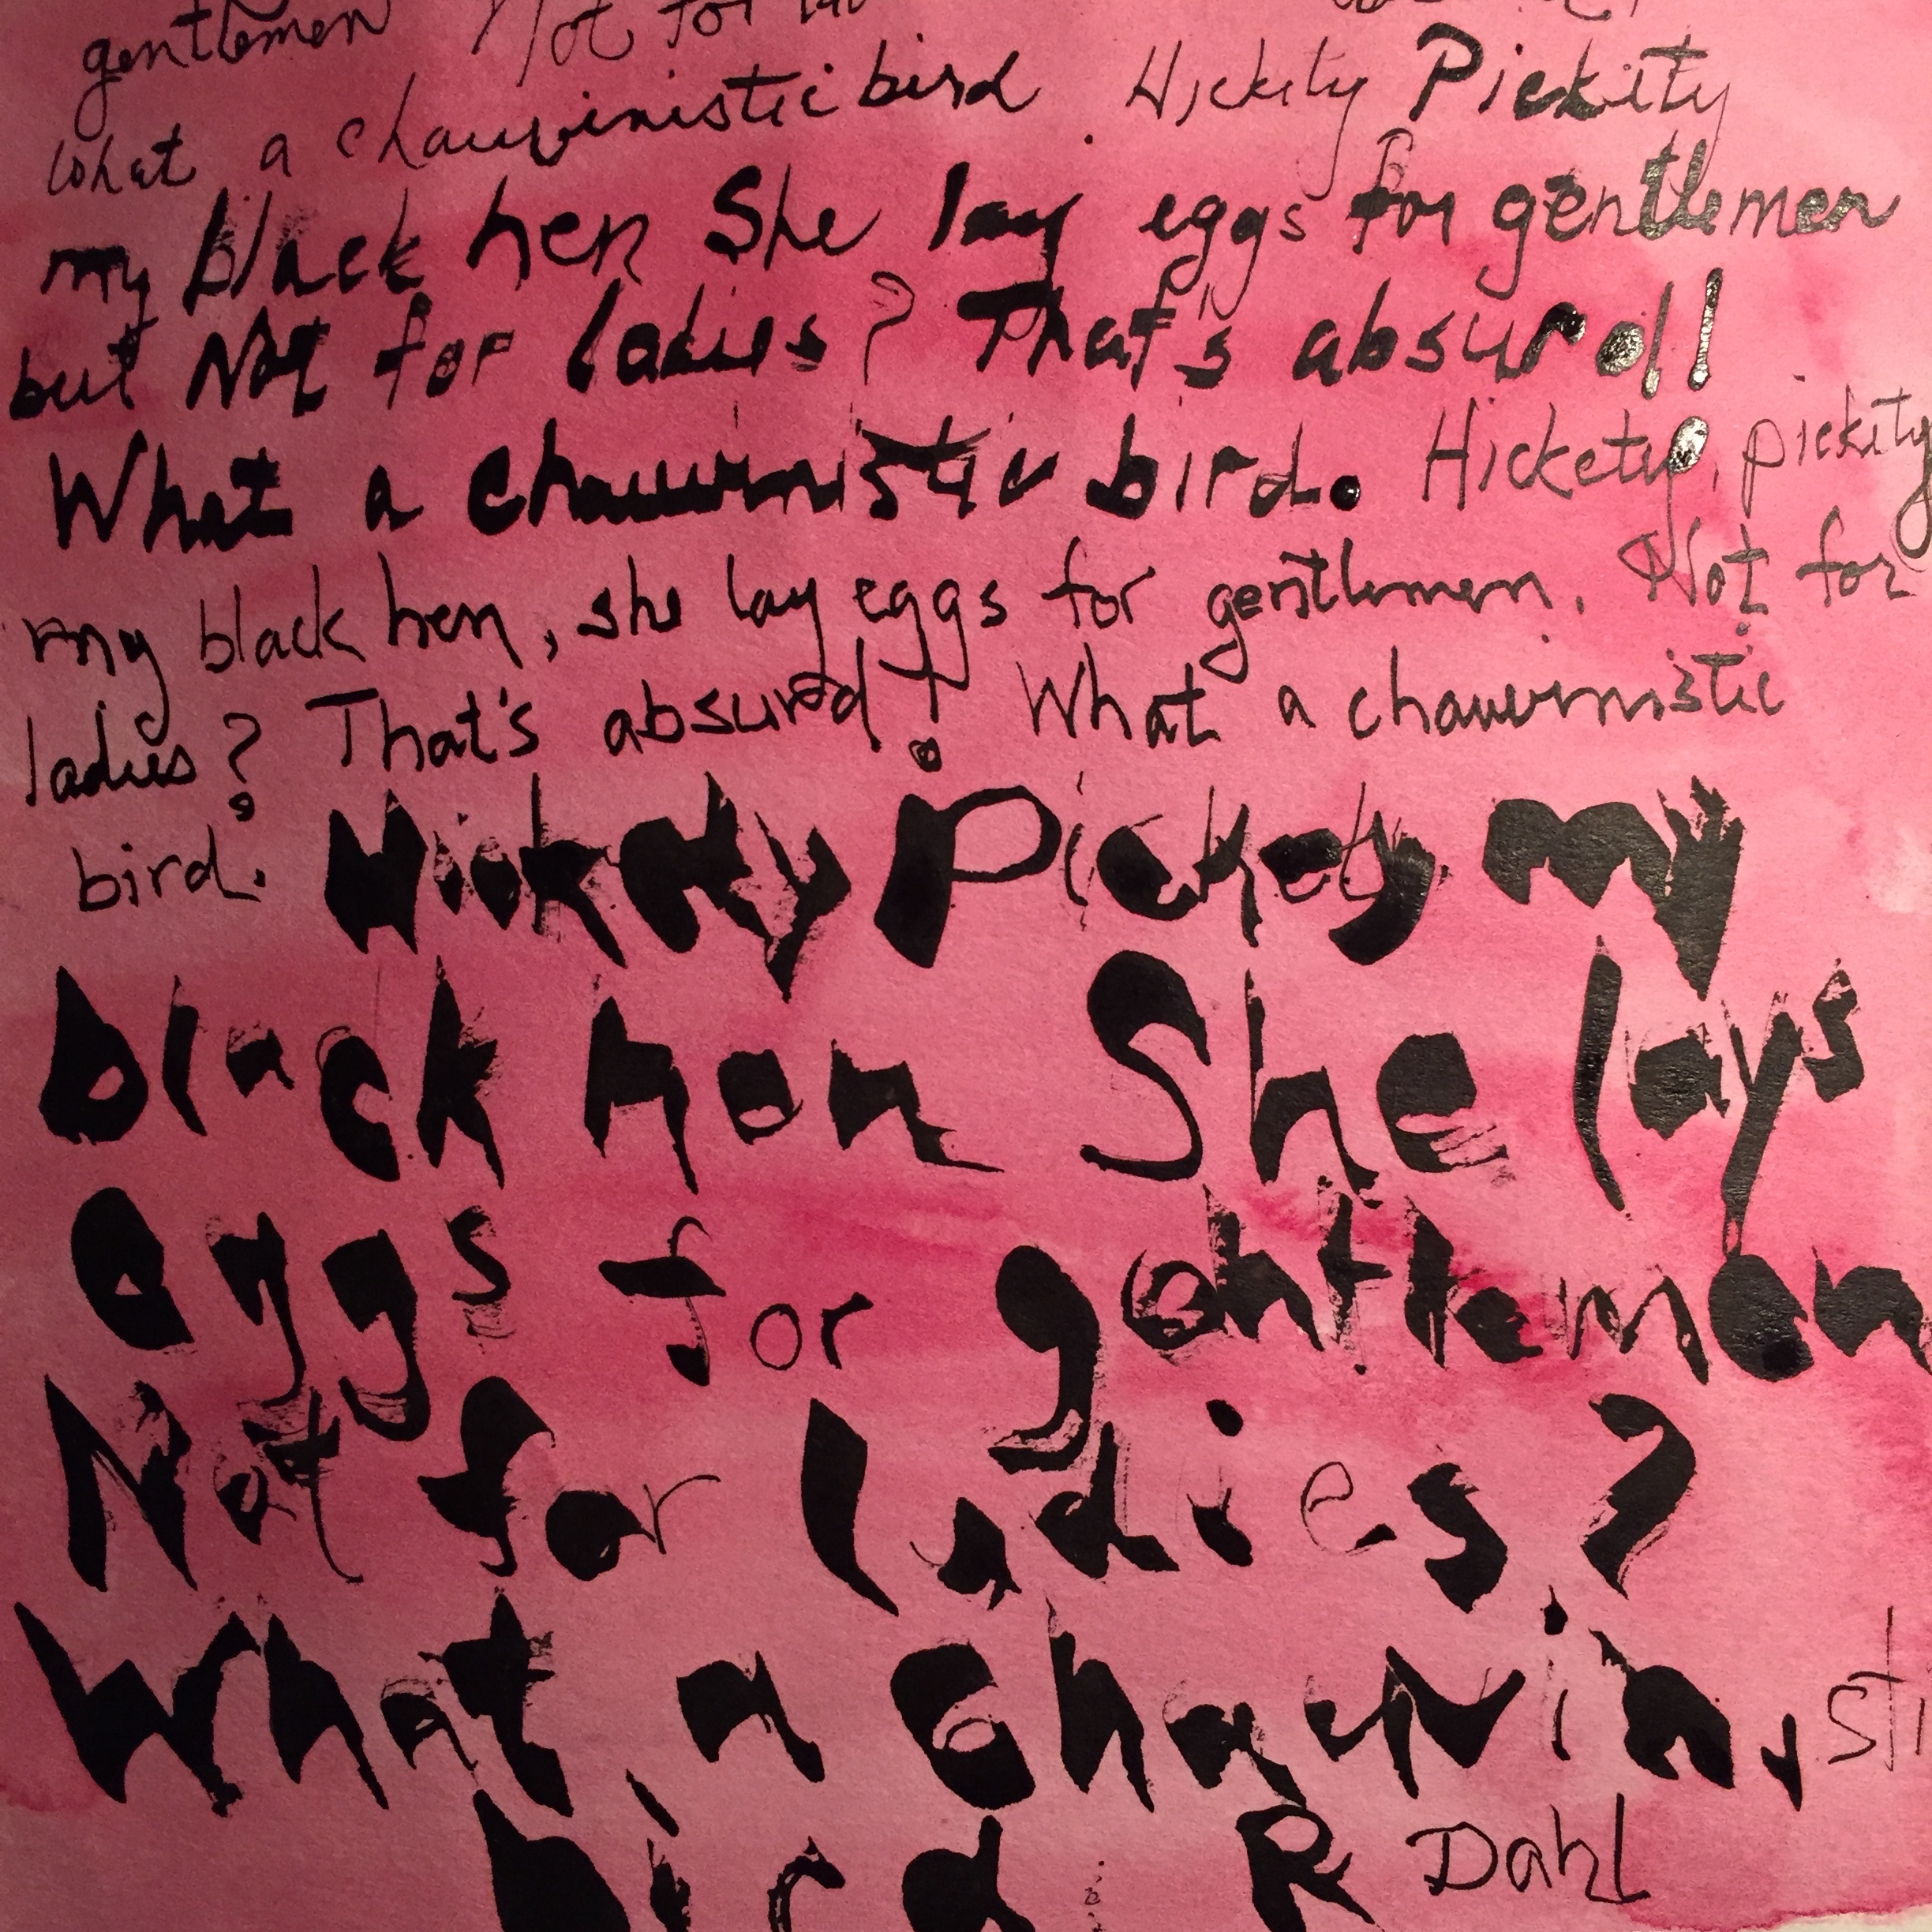 gentlemen Not for
What a chauvinistic bird. Hickity Pickity
my black hen She lay eggs for gentlemen
but Not for ladies? That's absurd!
What a chauvinistic bird. Hickety, pickity
my black hen, she lay eggs for gentlemen. Not for
ladies? That's absurd! What a chauvinistic
bird. Hickety Pickety my
black hen She lays
eggs for gentlemen
Not for ladies?
What a chauvinisti
bird. R Dahl